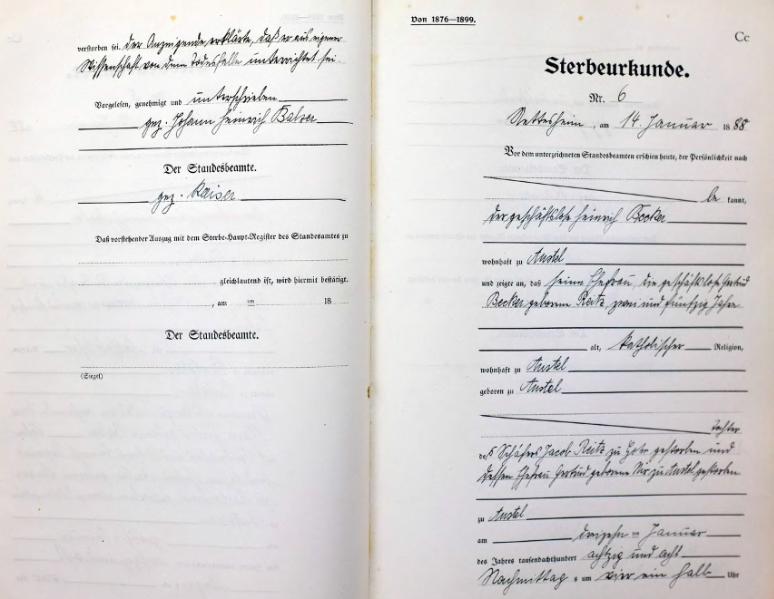 verstorben sei. Der Anzeigende erklärte, daß er aus eigener
Wissenschaft von dem Todesfalle unterrichtet sei.
Vorgelesen, genehmigt und unterschrieben
gez. Johann Heinrich
Der Standesbeamte.
gez. Kaiser
Daß vorstehender Auszug mit dem Sterbe-Haupt-Register des Standesamtes zu
gleichlautend ist, wird hiermit bestätigt.
, am 18
Der Standesbeamte.
(Siegel)
Von 1876—1899.
Cc
Sterbeurkunde.
Nr. 6
Nettesheim, am 14. Januar 1888
Vor dem unterzeichneten Standesbeamten erschien heute, der Persönlichkeit nach
be kannt,
der geschäftslose Heinrich Becker
wohnhaft zu Anstel
und zeigte an, daß seine Ehefrau, die geschäftslose Gertrud
Becker geborene Reitz, zwei und fünfzig Jahre
alt, katholischer Religion,
wohnhaft zu Anstel
geboren zu Anstel
Tochter
des Schäfers Jacob Reitz zu gestorben und
dessen Ehefrau Gertrud geborene zu Anstel gestorben
zu Anstel
am dreizehn Januar
des Jahres tausendachthundert achtzig und acht
Nachmittag s um vier ein halb Uhr